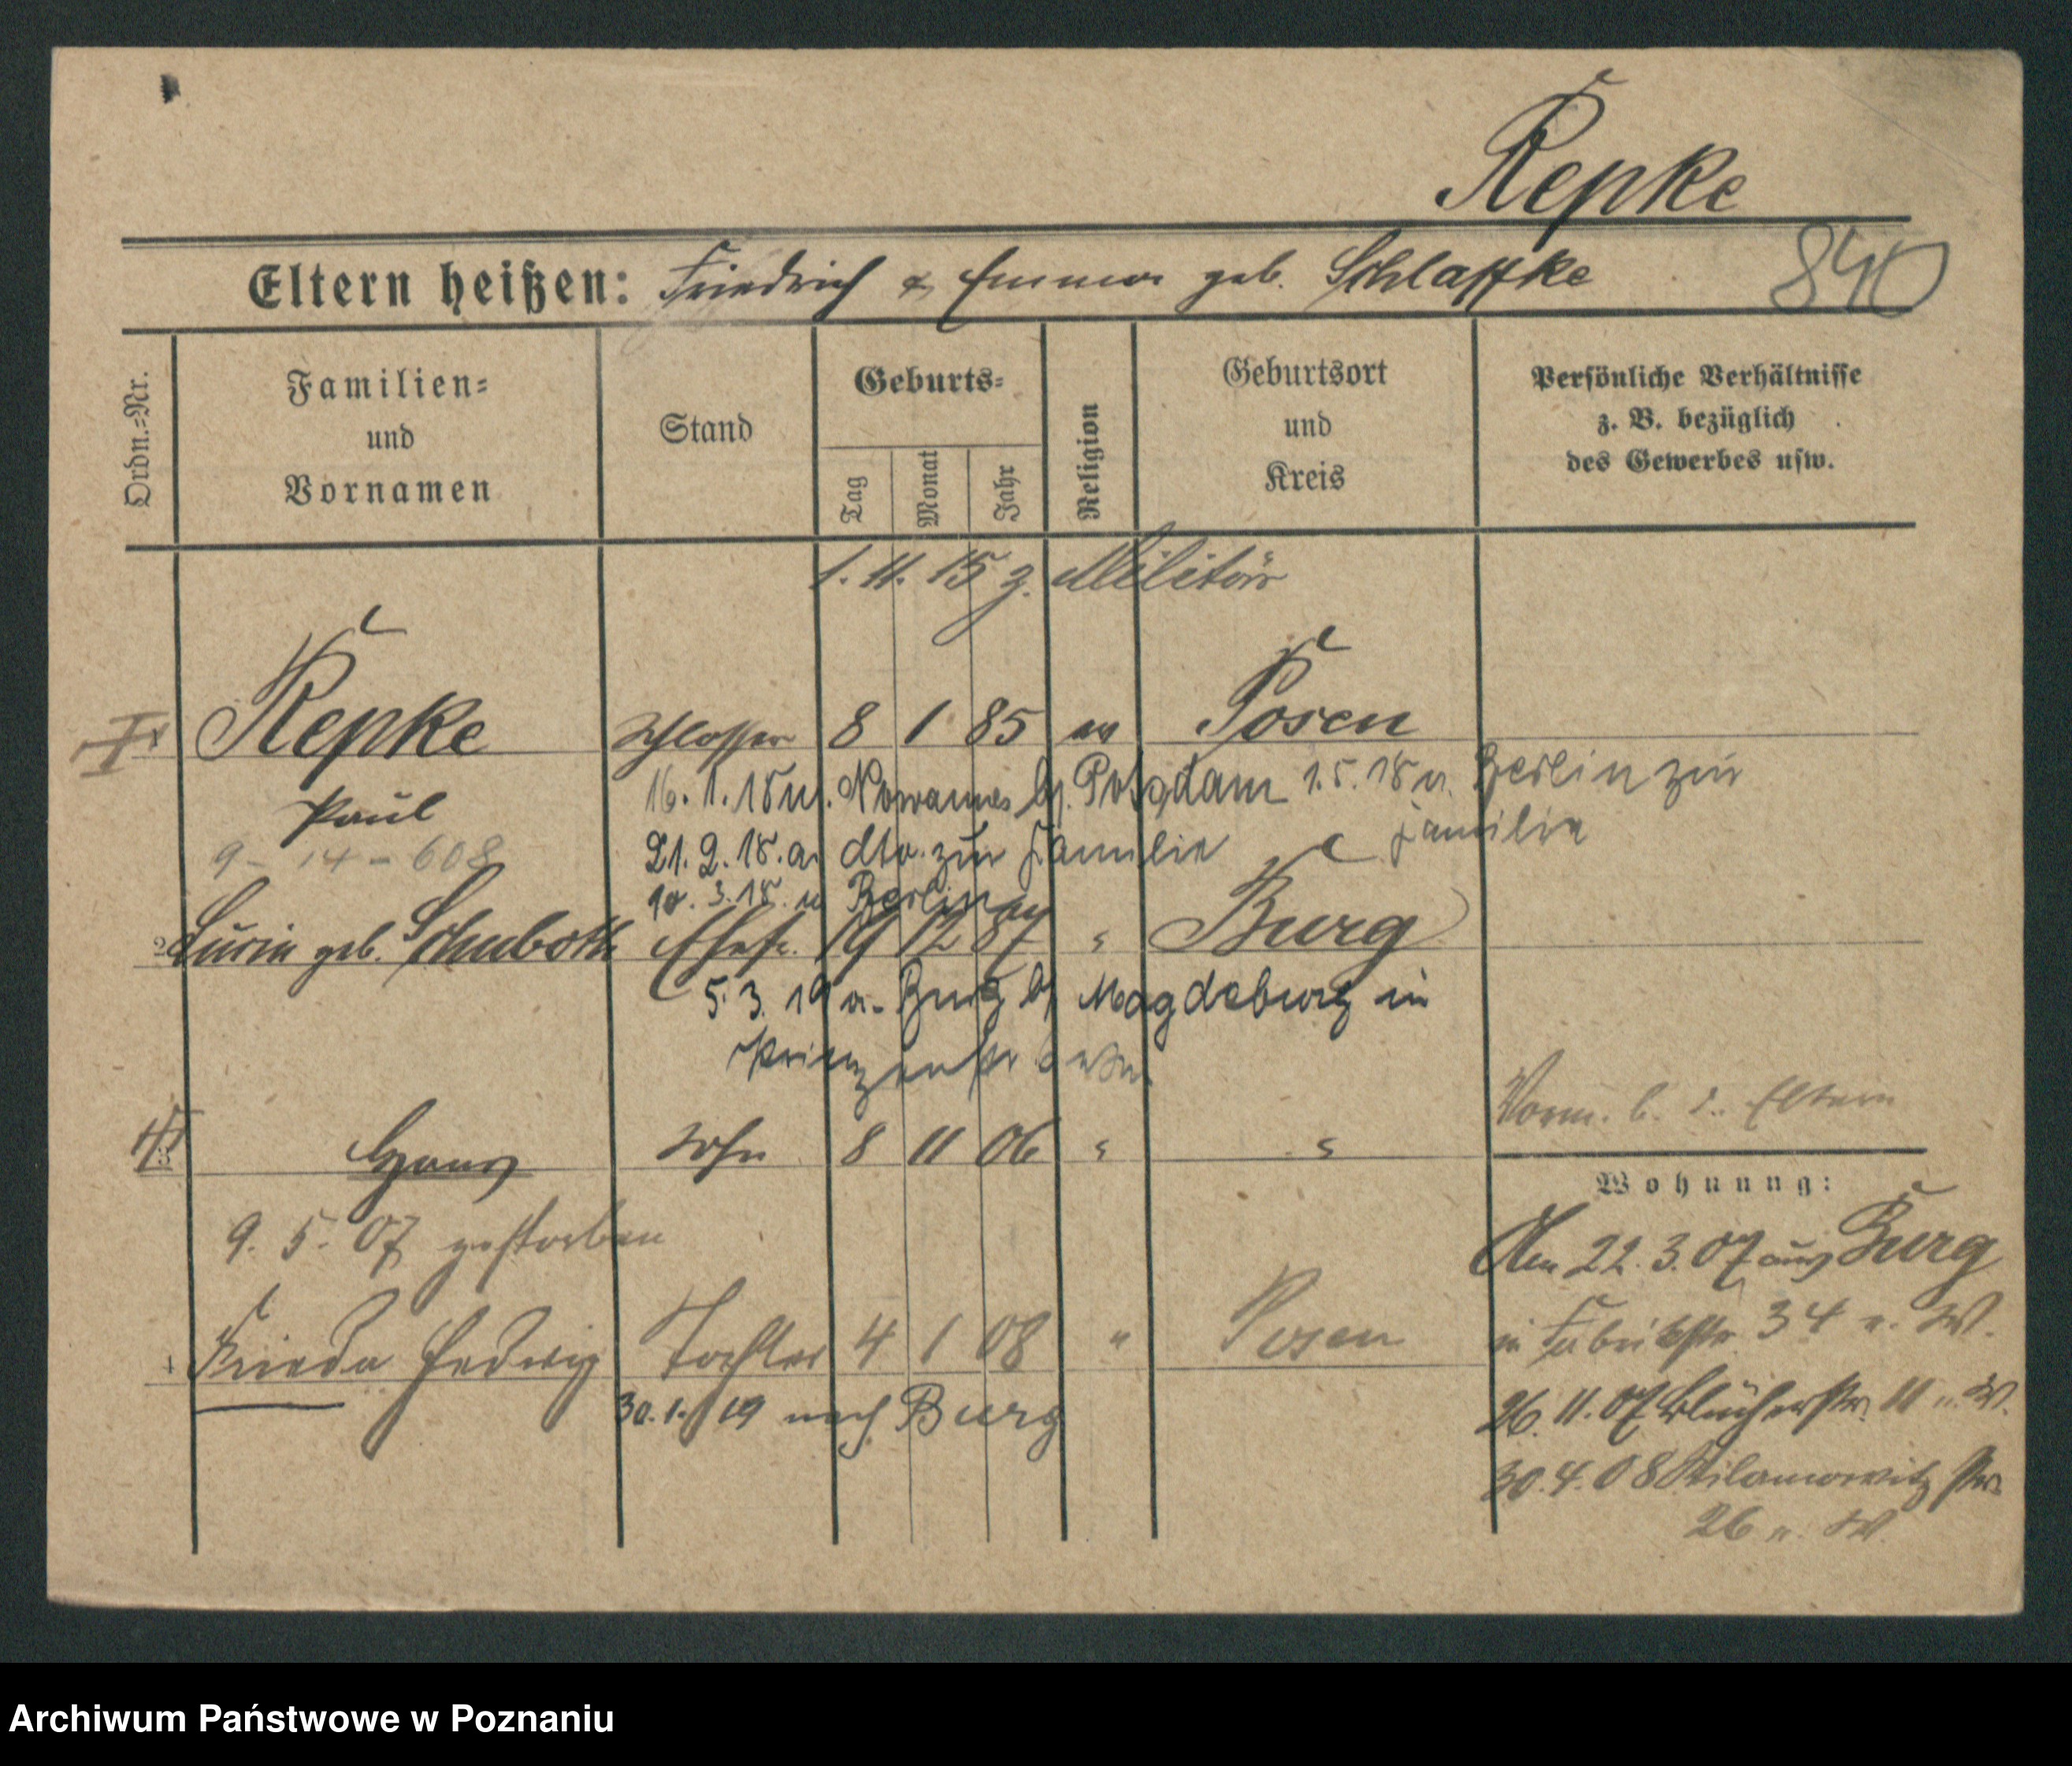 Repke
Eltern heißen: Friedrich & Emma geb. Schlaffke
840
Ordn.-Nr.
Familien-
und
Vornamen
Stand
Geburts-
Tag
Monat
Jahr
Religion
Geburtsort
und
Kreis
Persönliche Verhältnisse
z. B. bezüglich
des Gewerbes usw.
1. 11. 15 z. Militär
Repke Schlosser 8 1 85 ev Posen
Paul
9 - 14 - 608
16. 1. 18 n. Nowawes b. Potsdam 1. 5. 18 n. Berlin zur
Familie
21. 2. 18. a. dto. zur Familie
10. 3. 18. n Berlin
2 geb. Schuboth Ehefr. 19 12 87 " Burg
5. 3. 19 a. Burg b Magdeburg in
3 Hans Sohn 8 11 06 " "
9. 5. 07 gestorben
4 Frieda Hedwig Tochter 4 1 08 " Posen
30. 1. 19 nach Burg
Vorm. b. d. Eltern
Wohnung:
Am 22. 3. 07 aus Burg
in Fabrikstr. 34 n. W.
26. 11. 07 Blücherstr. 11 n. W.
30. 4. 08 Wilamowitzstr.
26 n. W.
Archiwum Państwowe w Poznaniu